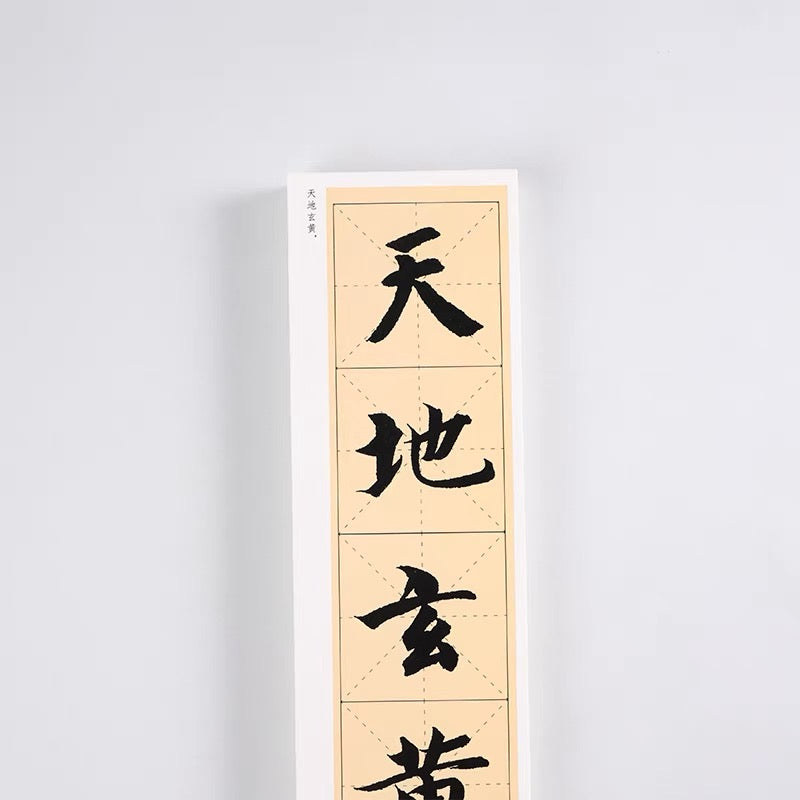 天地玄黄，
天地玄黄